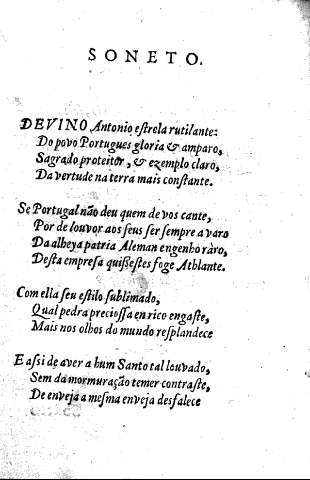 SONETO.
DEVINO Antonio eſtrela rutilante:
Do povo Portugues gloria & amparo,
Sagrado proteitor, & ezemplo claro,
Da vertude na terra mais conſtante.
Se Portugal não deu quem de vos cante,
Por de louvor aos ſeus ſer ſempre avaro
Da alheya patria Aleman engenho raro,
Deſta empreſa quiſeſtes foge Athlante.
Com ella ſeu eſtilo ſublimado,
Qual pedra precioſſa en rico engaſte,
Mais nos olhos do mundo reſplandece
E aſsi de aver a hum Santo tal louvado,
Sem da mormuração temer contraſte,
De enveja a meſma enveja desfalece